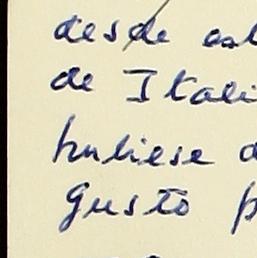 desde est
de Itali
hubiese d
gusto p